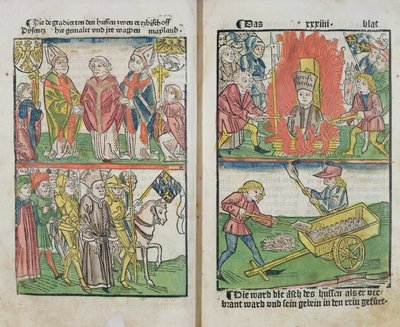 Hie degradierten den hussen zwen ertzbischoff
hie gemalet vnd ire wappen mayland·
Das xxxiiii· blat
Hie ward die äsch des hussen als er ver
brant ward vnd sein gebein in den rein gefürt·